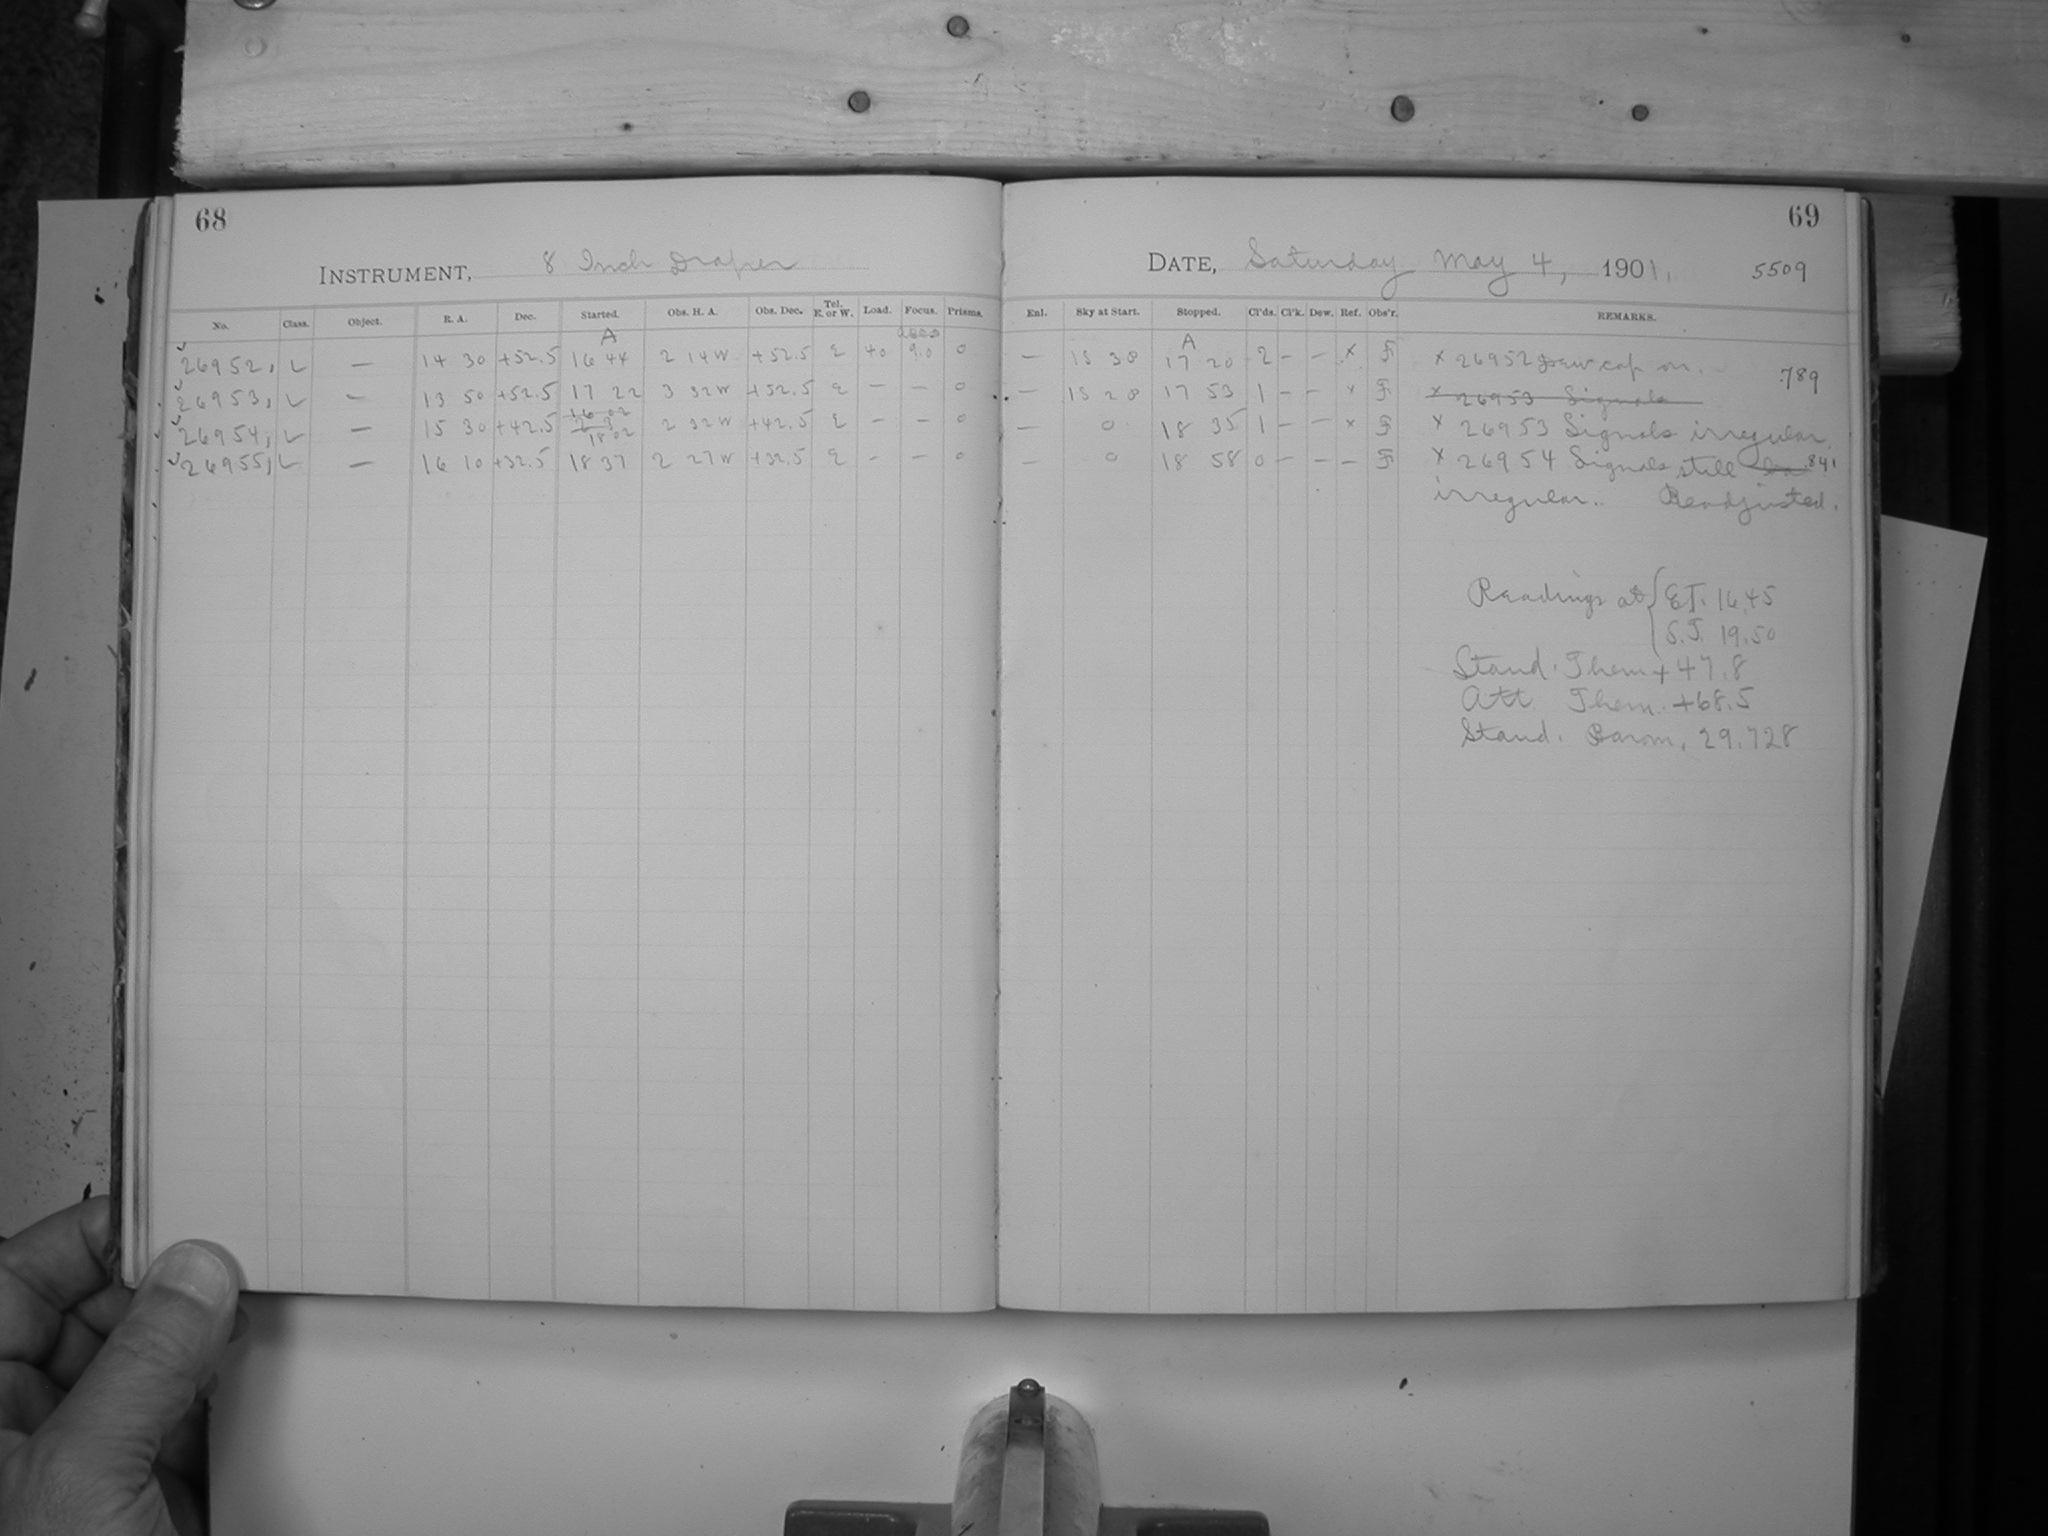 68
INSTRUMENT, 8 Inch Draper
No. Class. Object. R. A. Dec. Started. Obs. H. A. Obs. Dec. Tel. E. or W. Load. Focus. Prisms.
A
26952, L — 14 30 +52.5 16 44 2 14W +52.5 E 40 9.0 0
26953, L — 13 50 +52.5 17 22 3 32W +52.5 E — — 0
26954, L — 15 30 +42.5 18 02 2 32W +42.5 E — — 0
26955, L — 16 10 +32.5 18 37 2 27W +32.5 E — — 0
69
DATE, Saturday May 4, 1901. 5509
Enl. Sky at Start. Stopped. Cl'ds. Cl'k. Dew. Ref. Obs'r. REMARKS.
A
— 15 30 17 20 2 — — x F x 26952 Dew cap on.
789
— 15 20 17 53 1 — — x F x 26953 Signals
— 0 18 35 1 — — x F x 26953 Signals irregular.
— 0 18 58 0 — — — F x 26954 Signals still .841
irregular. Readjusted.
Readings at { E.T. 16.45
S.T. 19.50
Stand. Therm + 47.8
Att. Therm. +68.5
Stand. Barom. 29.728